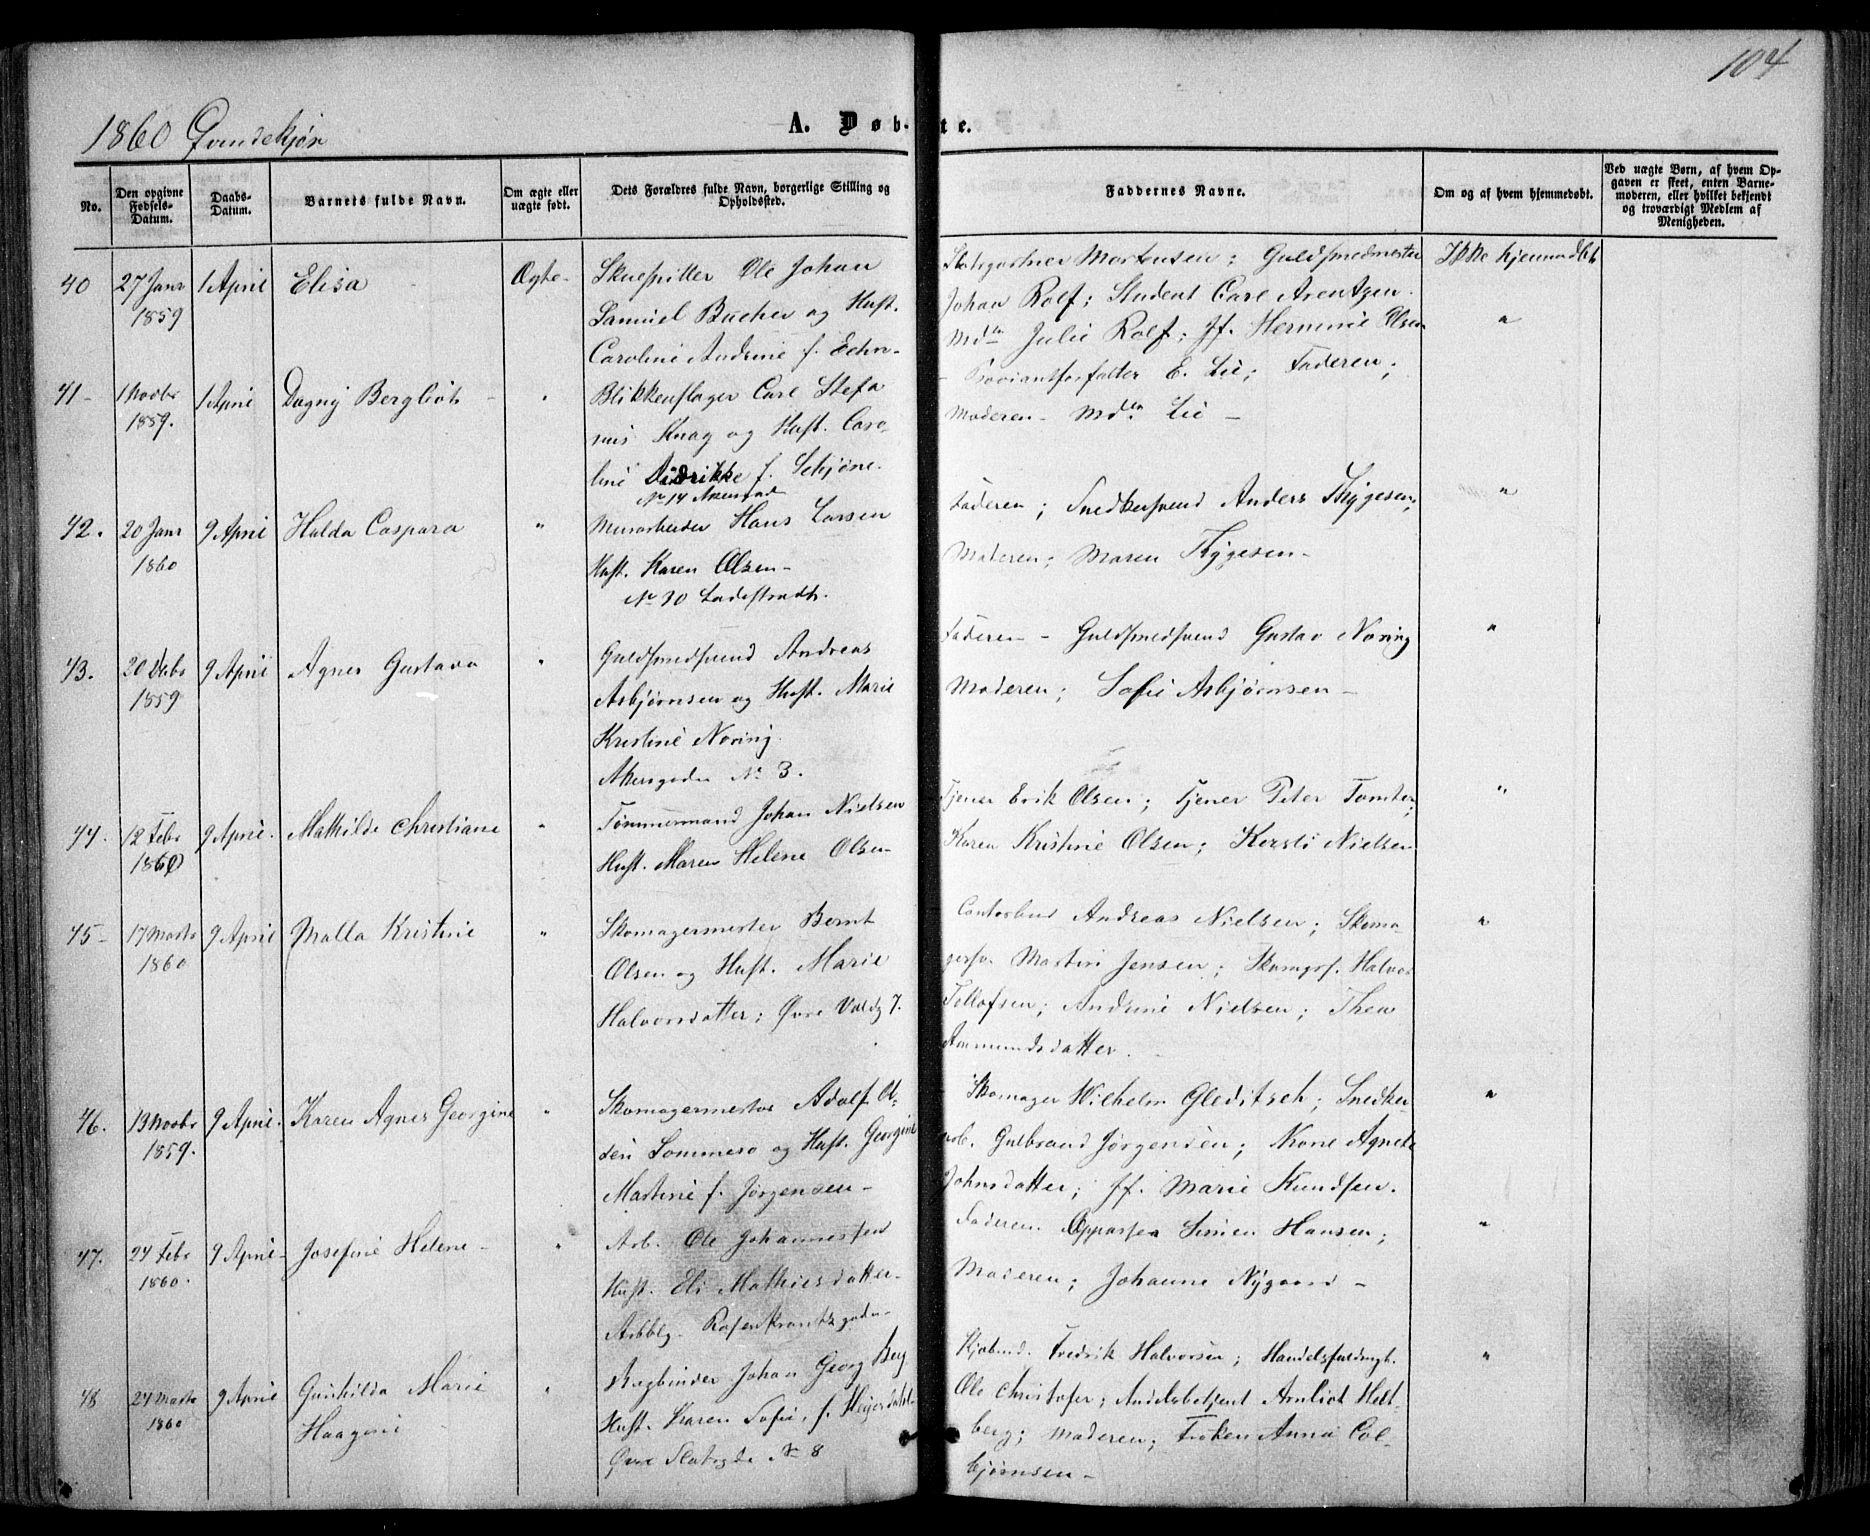 104
1860 Qvindekjøn
A. Døbte.
No.
Den opgivne Fødsels-Datum.
Daabs-Datum.
Barnets fulde Navn.
Om ægte eller uægte født.
Dets Forældres fulde Navn, borgerlige Stilling og Opholdssted.
Faddernes Navne.
Om og af hvem hjemmedøbt.
Ved uægte Børn, af hvem Opgaven er skeet, enten Barnemoderen, eller hvilket bekjendt og troværdigt Medlem af Menigheden.
40
27 Janr 1859
1 April
Elisa
Ægte
Skuespiller Ole Johan
Samuel Bucher og Hust.
Caroline Andrine f.
Slotsgartner Mortensen; Guldsmedmester
Johan Rolf; Student Carl Arentzen
Mdm Julie Rolf; Jf. Hermine Olsen
Ikke hjemmedøbt
41
1 Novbr 1859.
1 April
Dagny Bergliot
"
Blikkenslager Carl Stefa
nus Knag og Hust. Caro-
line Didrikke f. Schjøne.
No 14
Proviantforvalter E. Lie; Faderen;
Moderen - Mdm Lie -
"
42.
20 Janr 1860
9 April
Halda Caspara
"
Murarbeider Hans Larsen
Hust. Karen Olsen -
No 20 Ladestrædt.
Faderen; Snedkersvend Anders Thygesen;
Moderen; Maren Thygesen -
"
43.
20 Debr 1859
9 April
Agnes Gustava
"
Guldsmedsvend Andreas
Asbjørnsen og Hust. Marie
Kristine Noring.
Akersgaden No 3.
Faderen - Guldsmedsvend Gustav Noring
Moderen; Sofie Asbjørnsen -
"
44.
12 Febr 1860
9 April.
Mathilde Christiane
"
Tømmermand Johan Nielsen
Hust. Maren Helene Olsen
Tjener Erik Olsen; Tjener Peter Tomter;
Karen Kristine Olsen; Kersti Nielsen
"
45
17 Marts 1860
9 April
Malla Kristine
"
Skomagermester Bernt
Olsen og Hust. Marie
Halvorsdatter; Øvre Voldg 7.
Contorbud Andreas Nielsen; Skoma-
gersv. Martin Jensen; Skomgrs. Halvor
Tollofsen; Andrine Nielsen; Thea
Aamundsdatter.
"
46.
13 Novbr 1859.
9 April.
Karen Agnes Georgine
"
Skomagermester Adolf Ol-
sen Sommero og Hust. Georgine
Martine f. Jørgensen -
Skomager Wilhelm Gleditsch; Snedker-
arb. Gulbrand Jørgensen; Kone Agnete
Johnsdatter; Jf. Marie Knudsen.
"
47.
24 Febr 1860.
9 April
Josefine Helene
"
Arb. Ole Johannessen
Hust. Eli Mathiesdatter.
Arbbg. Rosenkrantzgaden
Faderen Oppasser Simen Hansen;
Moderen; Johanne Nygaard -
"
48
24 Marts 1860
9 April
Gunhilda Marie
Haagine
"
Bogbinder Johan Georg Berg
Hust. Karen Sofie, f. Hejerdahl
Øvre Slotsgde No 8
Kjøbmd. Fredrik Halvorsen; Handelsfuldmgt.
Ole Christofer; Andelsbetjent Arnliot Helt-
berg; Moderen; Frøken Anna Col-
bjørnsen -
"